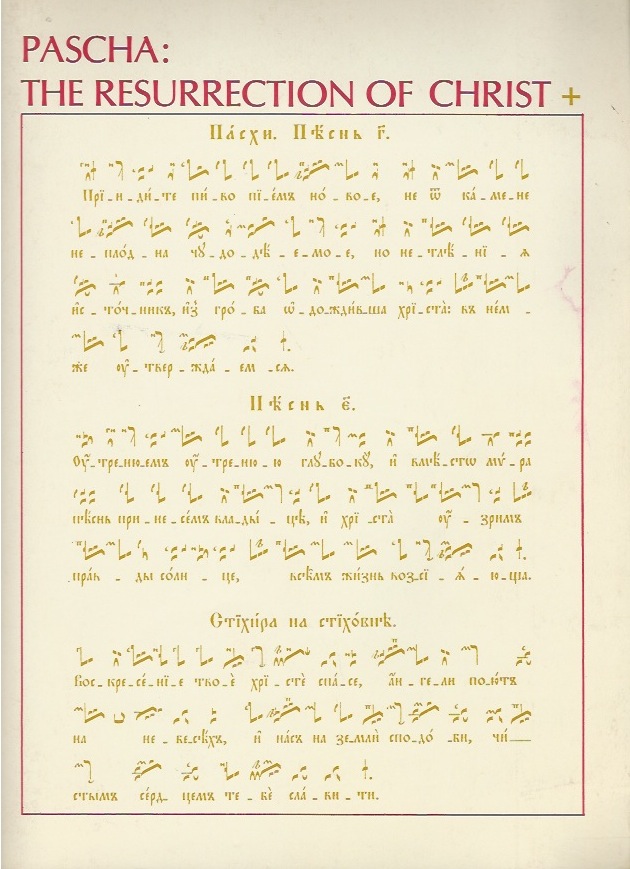 PASCHA:
THE RESURRECTION OF CHRIST +
Па́схи. Пѣ́снь г҃.
Прї_и_ди́_те пи́_во пїе́мъ но́_во_е, не ѿ ка́_ме_не
не_пло́д_на чꙋ_до_дѣ́_е_мо_е, но не_тлѣ́_нї_ѧ
и҆с_то́ч_никъ, и҆з̾ гро́_ба ѡ҆_дожди́вша хрїста̀: въ не́м_
же ᲂу҆_твер_жда́_ем_сѧ.
Пѣ́снь є҃.
Ѹ҆́_тренюемъ ᲂу҆́_треню_ю глꙋ_бо_кꙋ, и҆ вмѣ́с_тѡ мѵ́_ра
пѣ́снь при_не_се́мъ влады́_цѣ, и҆ хрї_ста̀ ᲂу҆́_зримъ
пра́в_ды со́лн_це, всѣ́мъ жи́знь возсї_ѧ́_юща.
Стїхи́ра на стїхо́внѣ.
Вос_кре_се́_нї_е тво_ѐ хрї_стѐ спа́_се, а҆́н_ге_ли пою́тъ
на не_бесѣ́хъ, и҆ на́съ на зе_млѝ спо_до́_би, чи́
стымъ се́рд_цемъ те_бѐ сла́_ви_ти.